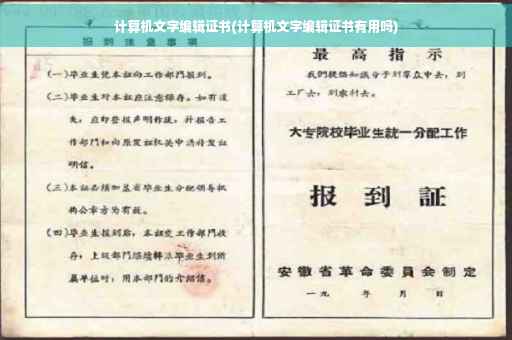 计算机文字编辑证书(计算机文字编辑证书有用吗)
报到注意事项
(一)毕业生凭本证向工作部门报到。
(二)毕业生对本证应注意保存。如有遗
失，应即登报声明作废，并报告工
作部门和向原发证机关申请补发证
明信。
(三)本证必须加盖省毕业生分配领导机
构公章方为有效。
(四)毕业生报到后，本证交工作部门收
存；上级部门继续转派毕业生到所
属单位时，用本部门的介绍信。
最高指示
我们提倡知识分子到群众中去，到
工厂去，到农村去。
大专院校毕业生統一分配工作
报到証
安徽省革命委員会制定
一九 年 月 日